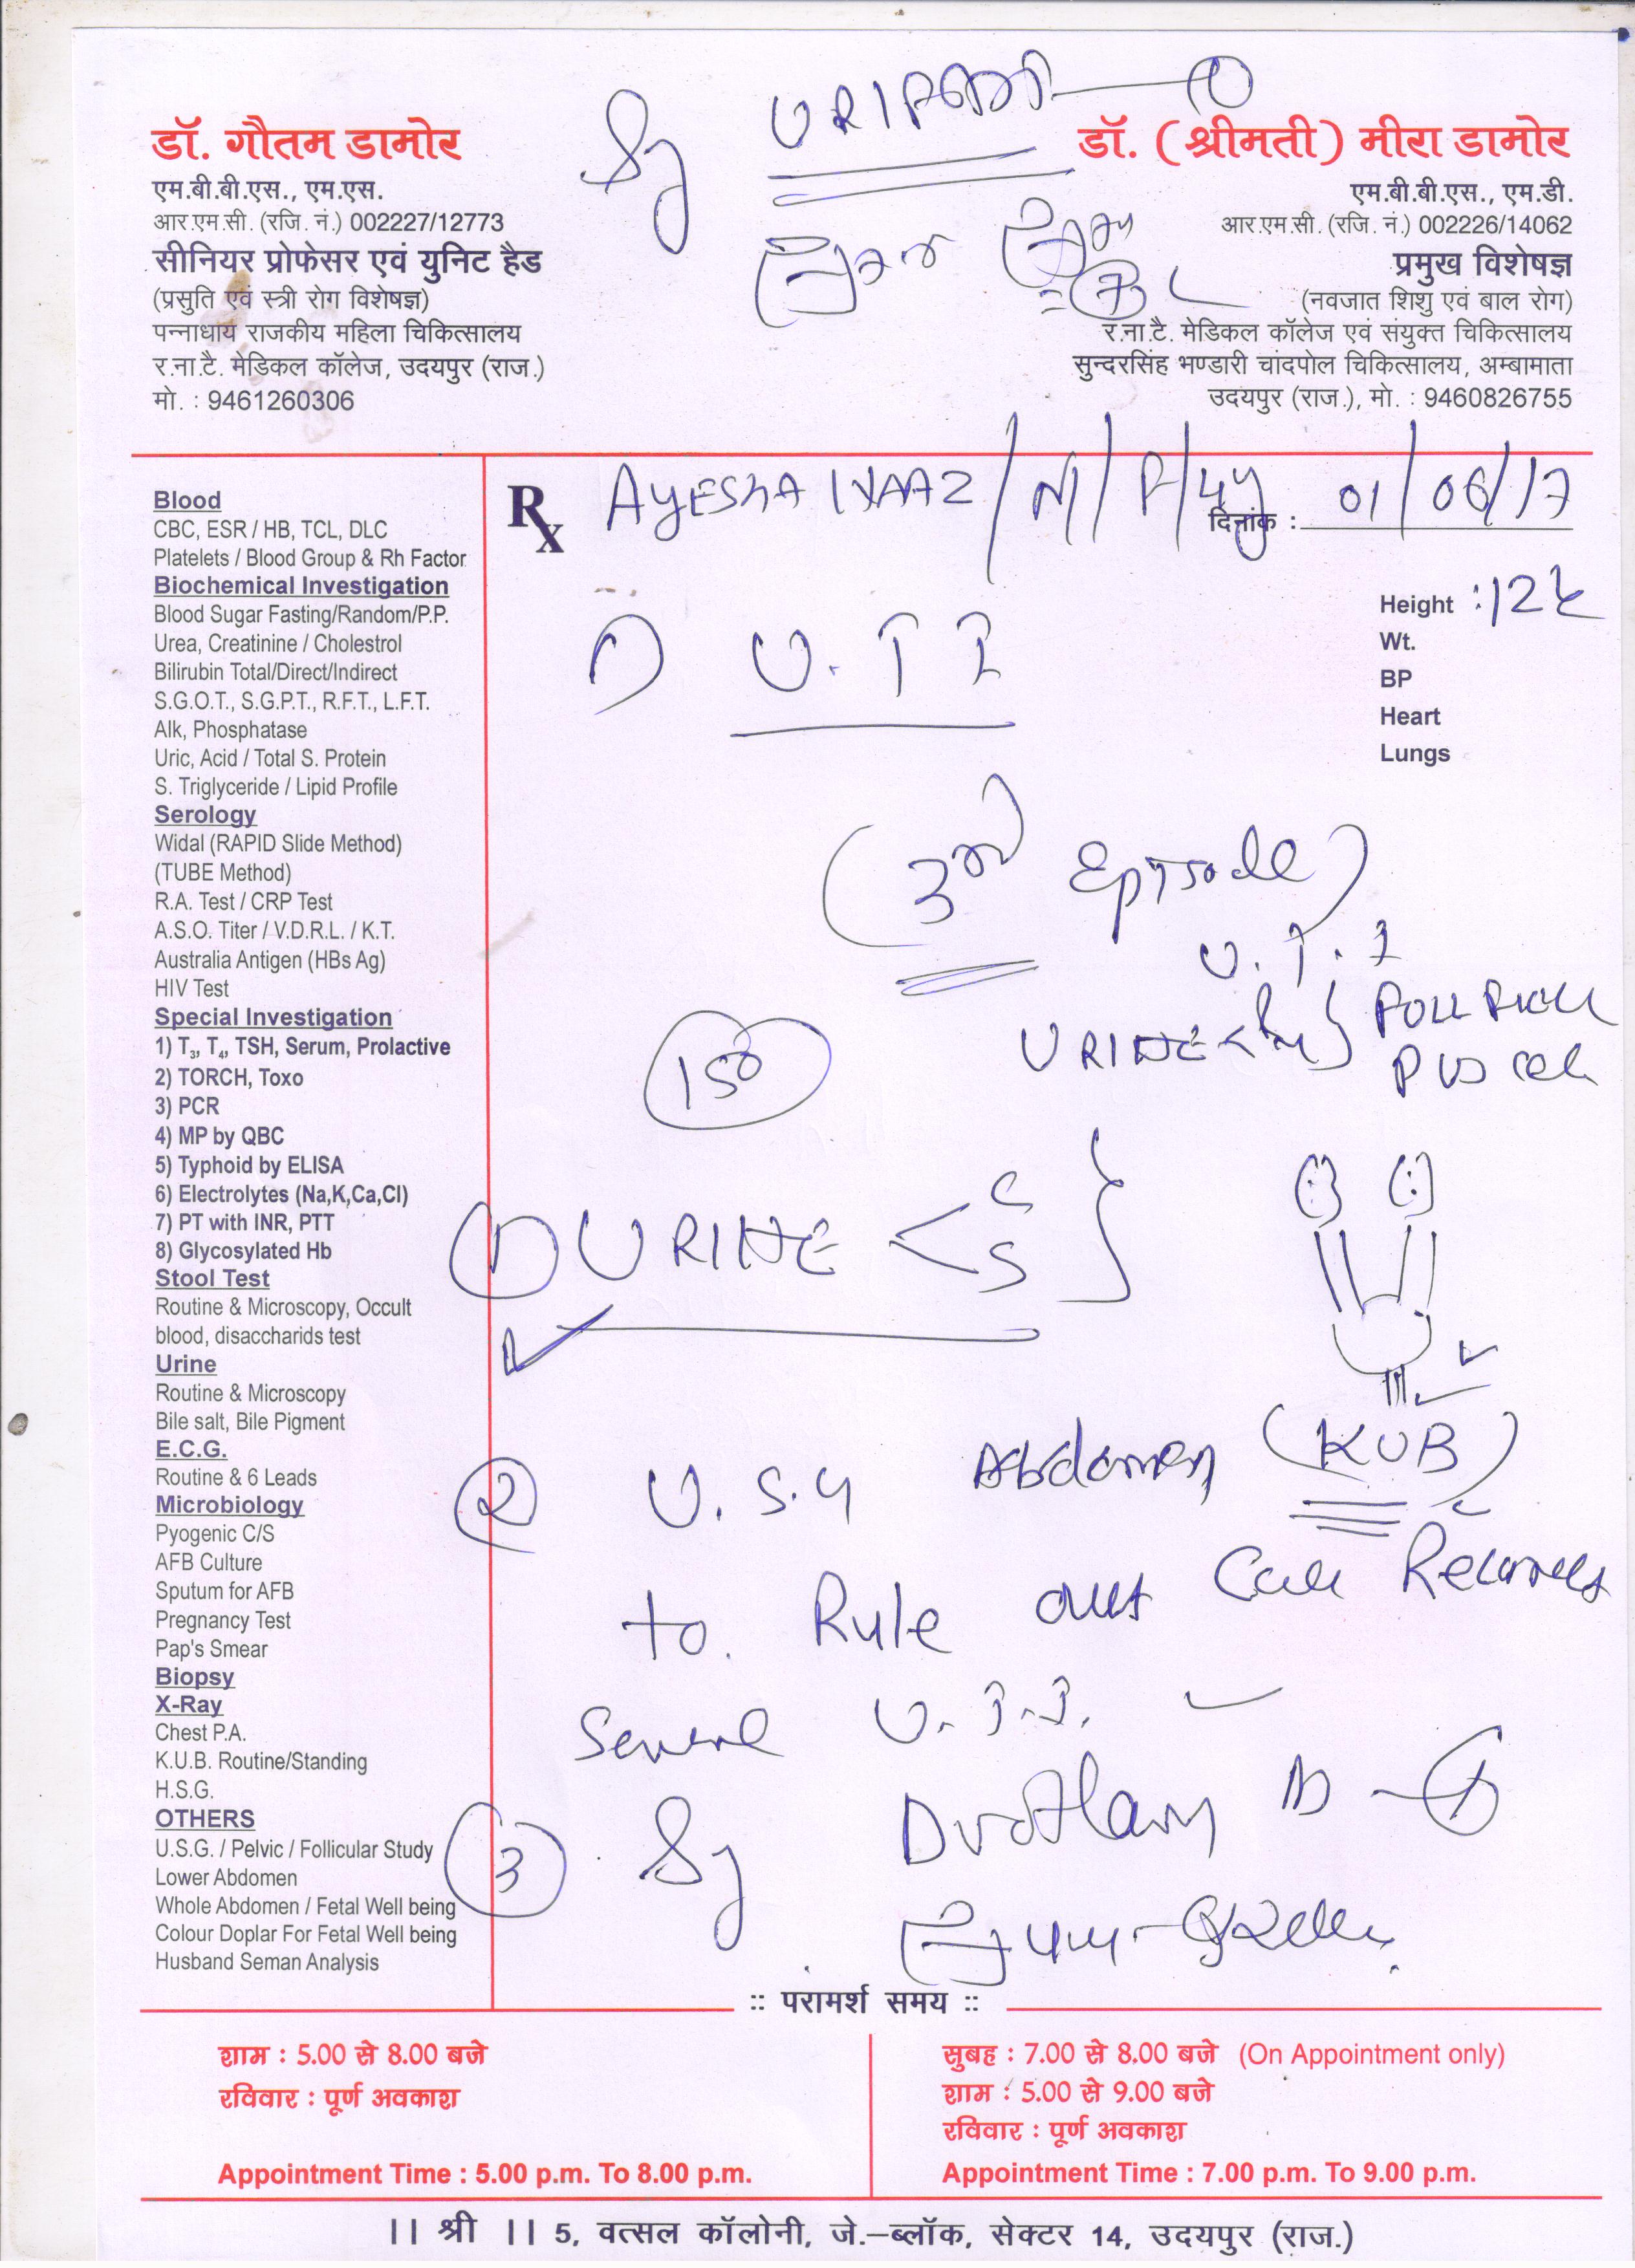 Sy URIP
डॉ. गौतम डामोर
एम.बी.बी.एस., एम.एस.
आर.एम.सी. (रजि. नं.) 002227/12773
सीनियर प्रोफेसर एवं युनिट हैड
(प्रसुति एवं स्त्री रोग विशेषज्ञ)
पन्नाधाय राजकीय महिला चिकित्सालय
र.ना.टै. मेडिकल कॉलेज, उदयपुर (राज.)
मो. : 9461260306
डॉ. (श्रीमती) मीरा डामोर
एम.बी.बी.एस., एम.डी.
आर.एम.सी. (रजि. नं.) 002226/14062
प्रमुख विशेषज्ञ
(नवजात शिशु एवं बाल रोग)
र.ना.टै. मेडिकल कॉलेज एवं संयुक्त चिकित्सालय
सुन्दरसिंह भण्डारी चांदपोल चिकित्सालय, अम्बामाता
उदयपुर (राज.), मो. : 9460826755
Blood
CBC, ESR / HB, TCL, DLC
Platelets / Blood Group & Rh Factor
Biochemical Investigation
Blood Sugar Fasting/Random/P.P.
Urea, Creatinine / Cholestrol
Bilirubin Total/Direct/Indirect
S.G.O.T., S.G.P.T., R.F.T., L.F.T.
Alk, Phosphatase
Uric, Acid / Total S. Protein
S. Triglyceride / Lipid Profile
Serology
Widal (RAPID Slide Method)
(TUBE Method)
R.A. Test / CRP Test
A.S.O. Titer / V.D.R.L. / K.T.
Australia Antigen (HBs Ag)
HIV Test
Special Investigation
1) T3, T4, TSH, Serum, Prolactive
2) TORCH, Toxo
3) PCR
4) MP by QBC
5) Typhoid by ELISA
6) Electrolytes (Na,K,Ca,Cl)
7) PT with INR, PTT
8) Glycosylated Hb
Stool Test
Routine & Microscopy, Occult
blood, disaccharids test
Urine
Routine & Microscopy
Bile salt, Bile Pigment
E.C.G.
Routine & 6 Leads
Microbiology
Pyogenic C/S
AFB Culture
Sputum for AFB
Pregnancy Test
Pap's Smear
Biopsy
X-Ray
Chest P.A.
K.U.B. Routine/Standing
H.S.G.
OTHERS
U.S.G. / Pelvic / Follicular Study
Lower Abdomen
Whole Abdomen / Fetal Well being
Colour Doplar For Fetal Well being
Husband Seman Analysis
Rx AYESHA / / F/4y दिनांक : 01/06/17
Height :
Wt.
BP
Heart
Lungs
U.T.I
(3rd Episode)
U.T.I
URINE
PUS cell
150
1 URINE < C S }
2 U.S.G Abdomen (KUB)
to Rule out
U.T.I.
3 Sy
:: परामर्श समय ::
शाम : 5.00 से 8.00 बजे
रविवार : पूर्ण अवकाश
Appointment Time : 5.00 p.m. To 8.00 p.m.
सुबह : 7.00 से 8.00 बजे (On Appointment only)
शाम : 5.00 से 9.00 बजे
रविवार : पूर्ण अवकाश
Appointment Time : 7.00 p.m. To 9.00 p.m.
|| श्री || 5, वत्सल कॉलोनी, जे.–ब्लॉक, सेक्टर 14, उदयपुर (राज.)